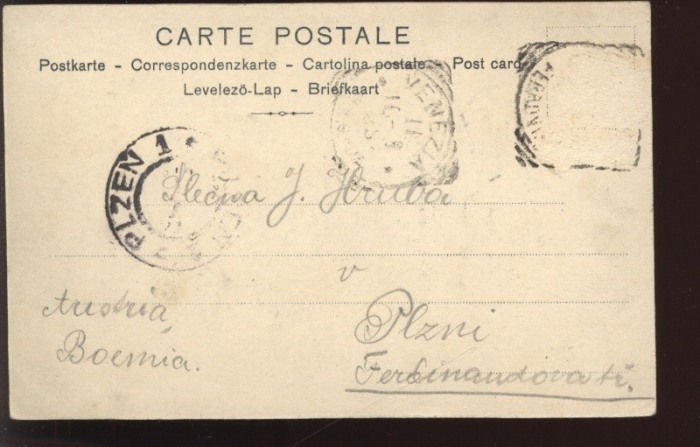 CARTE POSTALE
Postkarte - Correspondenzkarte - Cartolina postale - Post card
Levelező-Lap - Briefkaart
VENEZIA
PLZEN 1
Slečna J. Hrubá
v
Plzni
Ferdinandova tř.
Austria
Boemia.